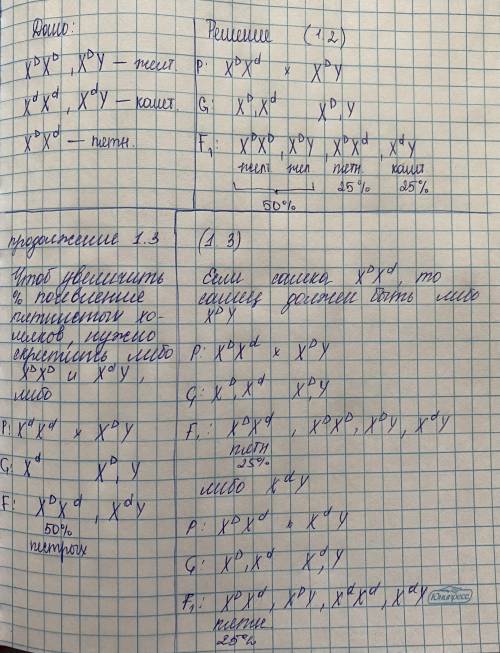 Дано:
X^D X^D, X^D Y — желт.
X^d X^d, X^d Y — кашт.
X^D X^d — пятн.
Решение (1,2)
P: X^D X^d × X^D Y
G: X^D, X^d X^D, Y
F₁: X^D X^D, X^D Y, X^D X^d, X^d Y
желт жел пятн кашт
50% 25% 25%
продолжение 1.3
Чтоб увеличить
% появление
пятнистых хо-
мяков, нужно
скрестить либо
X^D X^D и X^d Y,
либо
P: X^d X^d × X^D Y
G: X^d X^D, Y
F: X^D X^d, X^d Y
50%
пестрых
(1.3)
Если самка X^D X^d, то
самец должен быть либо
X^D Y
P: X^D X^d × X^D Y
G: X^D, X^d X^D, Y
F₁: X^D X^d, X^D X^D, X^D Y, X^d Y
пятн
25%
либо X^d Y
P: X^D X^d × X^d Y
G: X^D, X^d X^d, Y
F₁: X^D X^d, X^D Y, X^d X^d, X^d Y
пятн
25%
Юнипресс